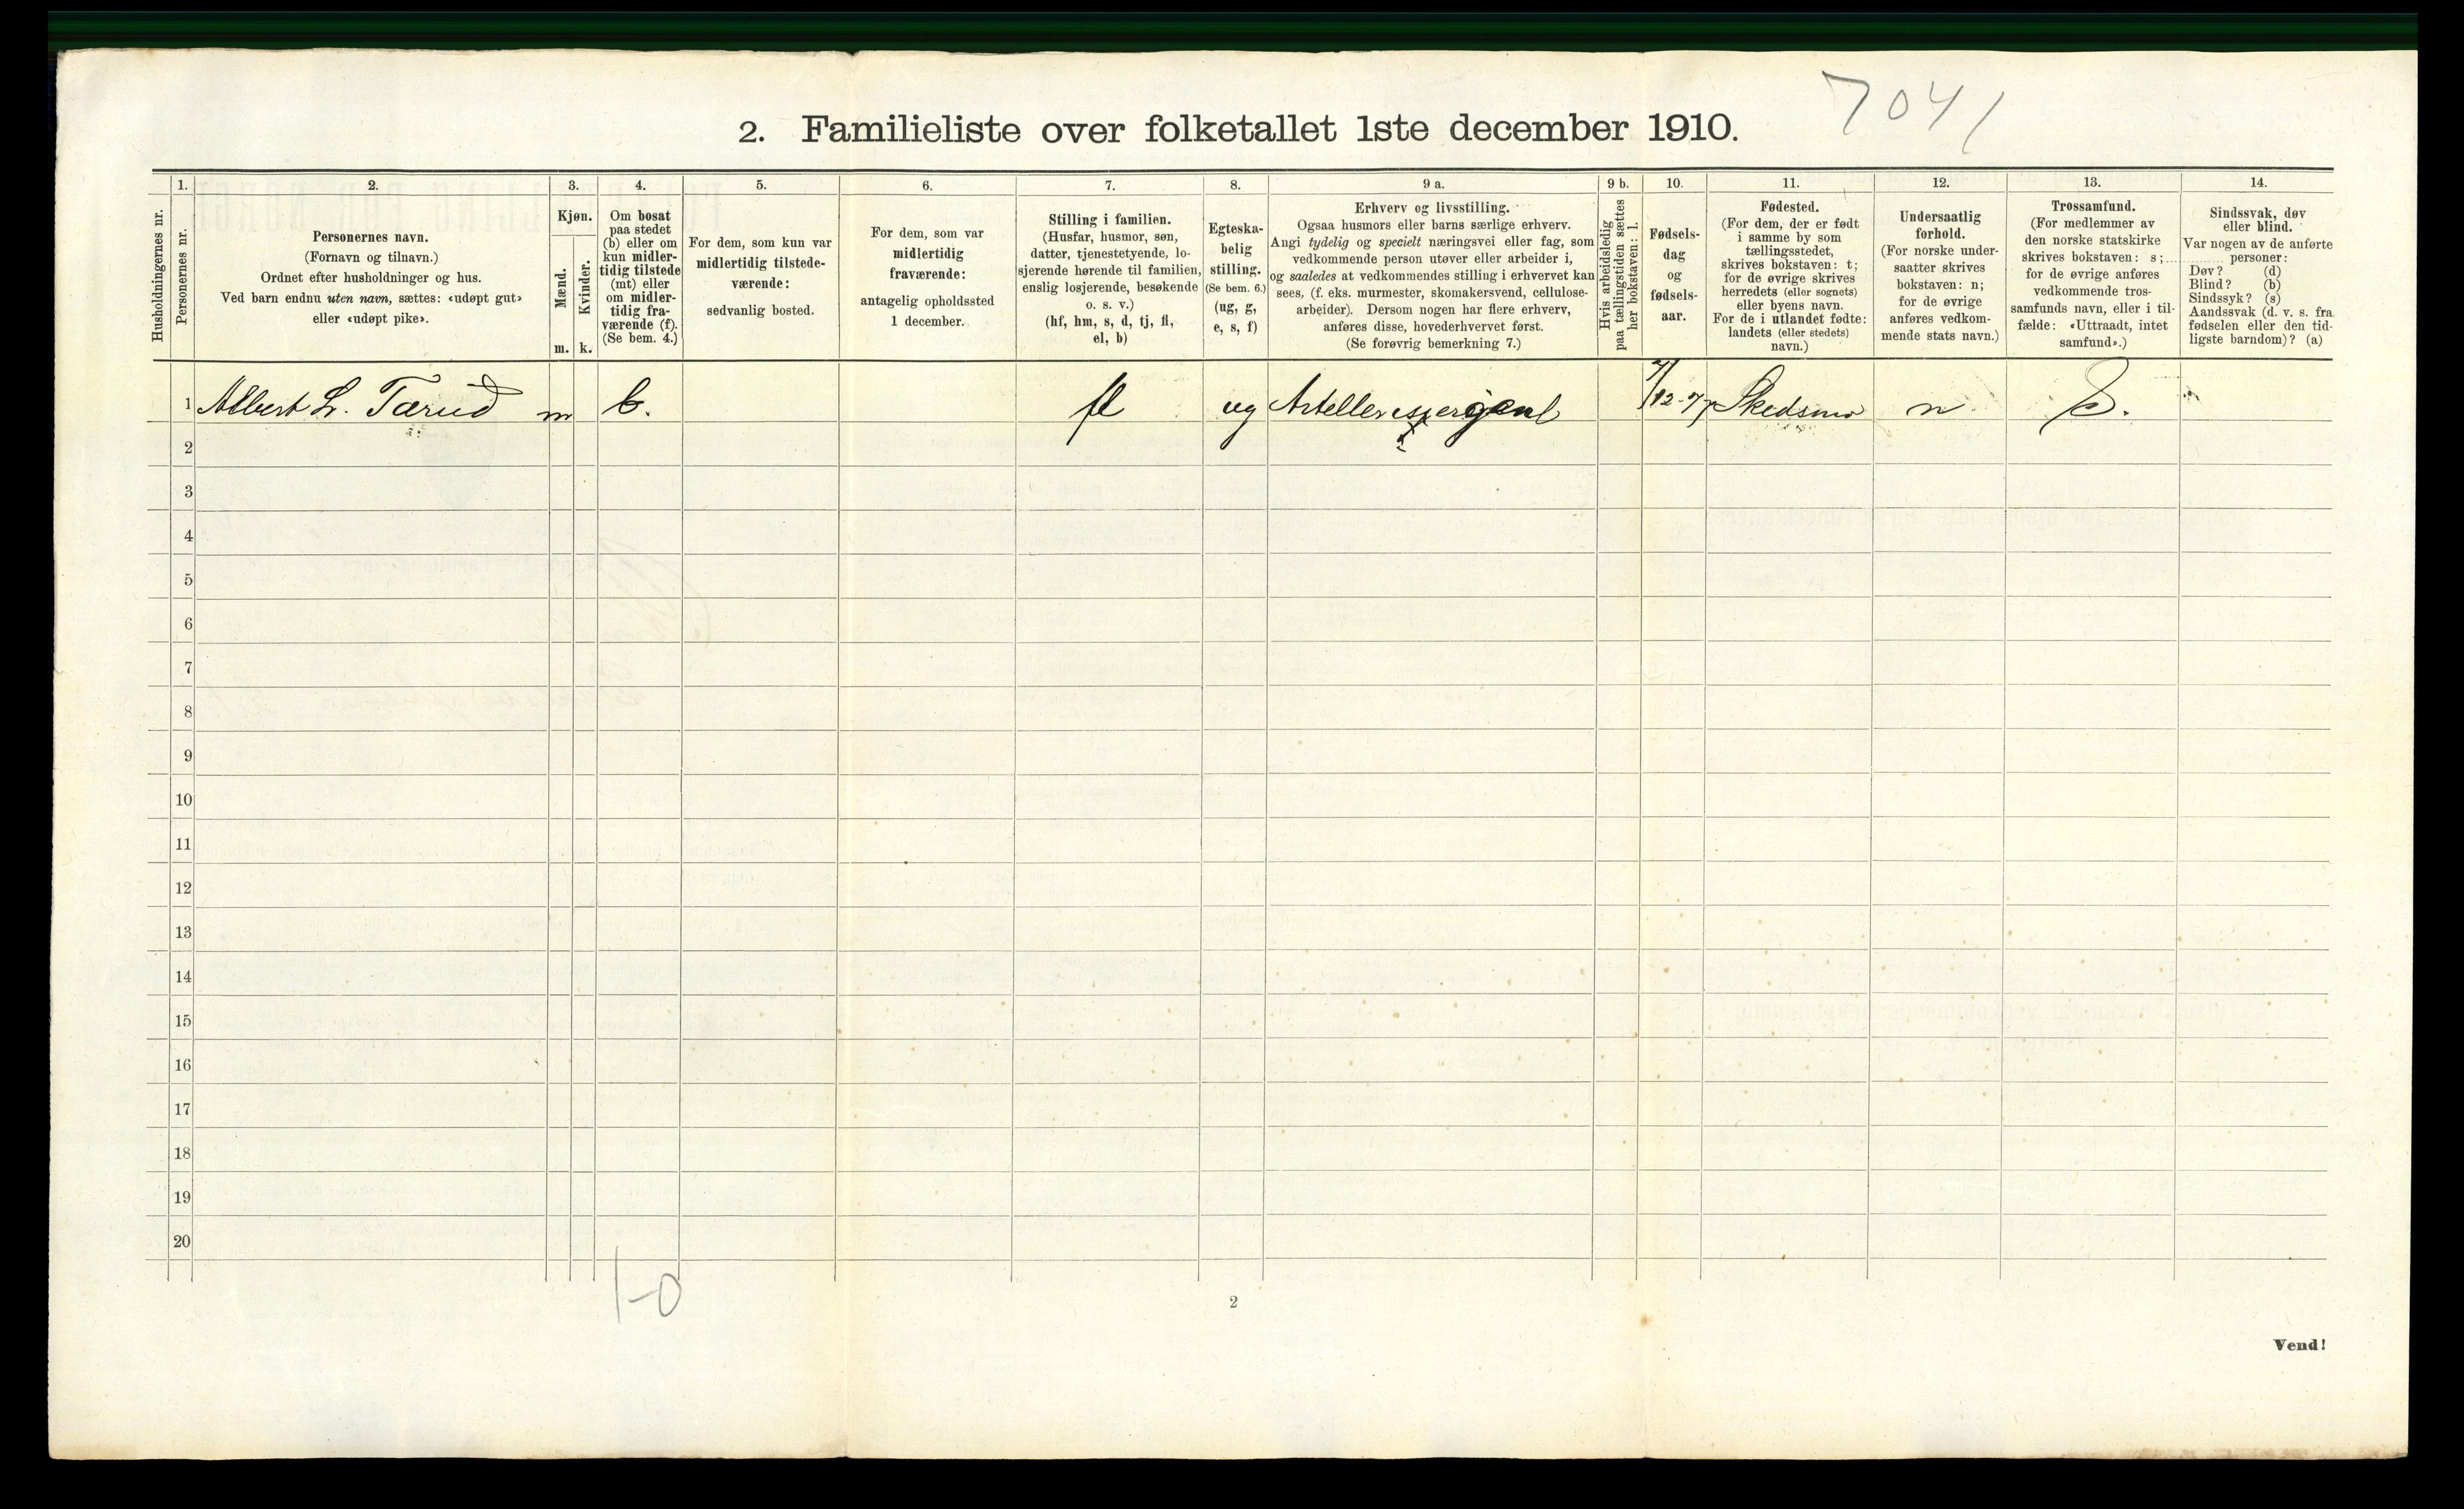 7041
2. Familieliste over folketallet 1ste december 1910.
Husholdningernes nr.
1.
Personernes nr.
2.
Personernes navn.
(Fornavn og tilnavn.)
Ordnet efter husholdninger og hus.
Ved barn endnu uten navn, sættes: «udøpt gut»
eller «udøpt pike».
3.
Kjøn.
Mænd.
Kvinder.
m. k.
4.
Om bosat
paa stedet
(b) eller om
kun midler-
tidig tilstede
(mt) eller
om midler-
tidig fra-
værende (f).
(Se bem. 4.)
5.
For dem, som kun var
midlertidig tilstede-
værende:
sedvanlig bosted.
6.
For dem, som var
midlertidig
fraværende:
antagelig opholdssted
1 december.
7.
Stilling i familien.
(Husfar, husmor, søn,
datter, tjenestetyende, lo-
sjerende hørende til familien,
enslig losjerende, besøkende
o. s. v.)
(hf, hm, s, d, tj, fl,
el, b)
8.
Egteska-
belig
stilling.
(Se bem. 6.)
(ug, g,
e, s, f)
9 a.
Erhverv og livsstilling.
Ogsaa husmors eller barns særlige erhverv.
Angi tydelig og specielt næringsvei eller fag, som
vedkommende person utøver eller arbeider i,
og saaledes at vedkommendes stilling i erhvervet kan
sees, (f. eks. murmester, skomakersvend, cellulose-
arbeider). Dersom nogen har flere erhverv,
anføres disse, hovederhvervet først.
(Se forøvrig bemerkning 7.)
9 b.
Hvis arbeidsledig
paa tællingstiden sættes
her bokstaven: l.
10.
Fødsels-
dag
og
fødsels-
aar.
11.
Fødested.
(For dem, der er født
i samme by som
tællingsstedet,
skrives bokstaven: t;
for de øvrige skrives
herredets (eller sognets)
eller byens navn.
For de i utlandet fødte:
landets (eller stedets)
navn.)
12.
Undersaatlig
forhold.
(For norske under-
saatter skrives
bokstaven: n;
for de øvrige
anføres vedkom-
mende stats navn.)
13.
Trossamfund.
(For medlemmer av
den norske statskirke
skrives bokstaven: s;
for de øvrige anføres
vedkommende tros-
samfunds navn, eller i til-
fælde: «Uttraadt, intet
samfund».)
14.
Sindssvak, døv
eller blind.
Var nogen av de anførte
personer:
Døv? (d)
Blind? (b)
Sindssyk? (s)
Aandssvak (d. v. s. fra
fødselen eller den tid-
ligste barndom)? (a)
1 Albert L. Tærud m b. fl ug Skedsmo n S.
2
3
4
5
6
7
8
9
10
11
12
13
14
15
16
17
18
19
20
1-0
2
Vend!